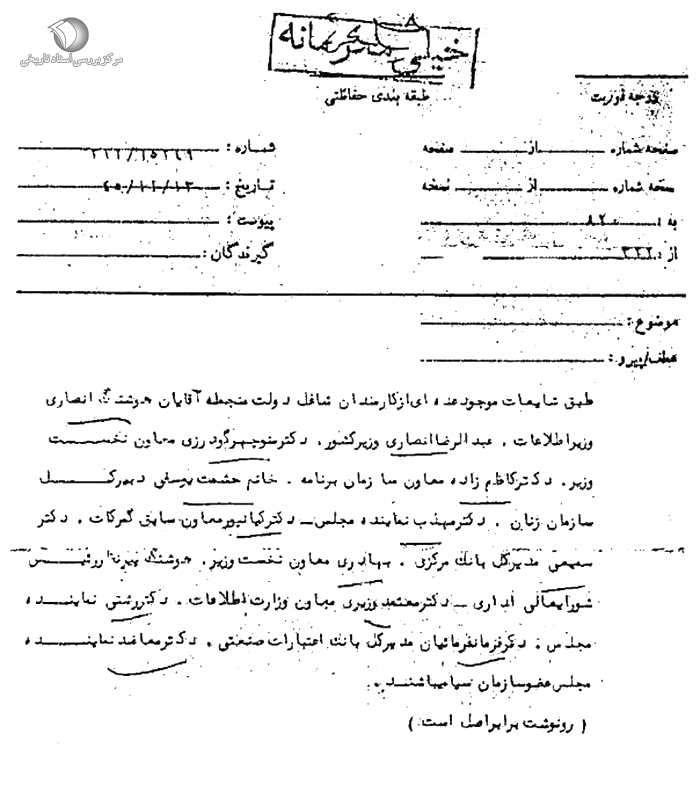 مرکز بررسی اسناد تاریخی
خیلی محرمانه
طبقه بندی حفاظتی
درجه فوریت
صفحه شماره از صفحه
شماره : ۳۲۲/۱۵۲۶۹
نسخه شماره از نسخه
تاریخ : ۴۵/۱۲/۱۳
به : ۸۲۰
پیوست :
از : ۳۲۲
گیرندگان :
موضوع :
عطف/پیرو :
طبق شایعات موجود عده ای از کارمندان شاغل دولت منجمله آقایان هوشنگ انصاری
وزیر اطلاعات ، عبدالرضا انصاری وزیر کشور، دکتر منوچهر گودرزی معاون نخست
وزیر. دکتر کاظم زاده معاون سازمان برنامه . خانم حشمت یوسفی دبیر کل
سازمان زنان . دکتر مهذب نماینده مجلس ـ دکتر کیانپور معاون سابق گمرکات . دکتر
سمیعی مدیر کل بانک مرکزی . بهادری معاون نخست وزیر. هوشنگ رئیس
شورایعالی اداری ـ دکتر معتمد وزیری معاون وزارت اطلاعات . دکتر رشتی نماینده
مجلس . دکتر فرمانفرمائیان مدیر کل بانک اعتبارات صنعتی . دکتر نماینده
مجلس عضو سازمان سیا میباشند .
( رونوشت برابر اصل است )